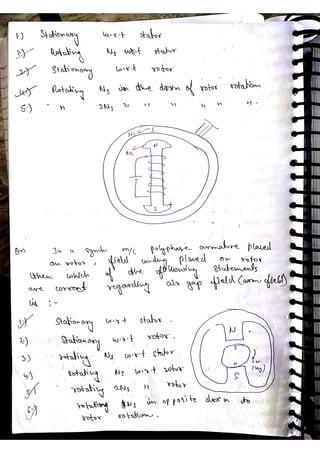 1.) Stationary w.r.t stator
2.) Rotating Ns w.r.t stator
3.) Stationary w.r.t rotor
4.) Rotating Ns in the dirxn of rotor rotation
5.) " 2Ns " " " " ".
Ns S
Ns
N
S
Qn) In a synch m/c polyphase armature placed
on rotor, field winding placed on rotor
then which of the following statements
are correct regarding air gap field (arm. field)
is :-
1) Stationary w.r.t stator.
2) Stationary w.r.t rotor.
3) rotating Ns w.r.t stator
4) rotating Ns w.r.t rotor
5) rotating 2Ns " rotor
6) rotating Ns in opposite dirxn to
rotor rotation.
N
S
N
S
(Ns)